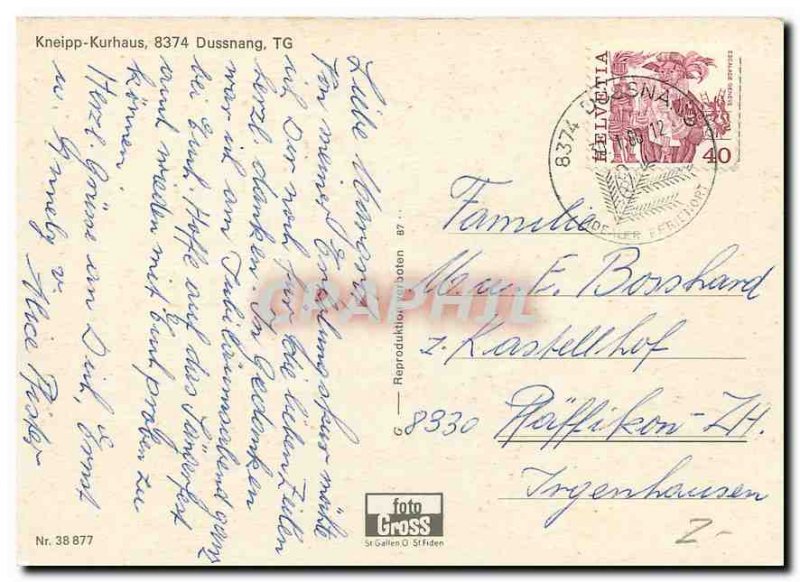 Kneipp-Kurhaus, 8374 Dussnang, TG
Liebe Margrit
Von meiner Erholungskur möchte
ich Dir noch für die lieben Zeilen
herzl. danken. In Gedanken
war ich am Jubiläumsabend ganz
bei Euch. Hoffe auf das Sängerfest
damit wieder mit Euch proben zu
können.
Herzl. Grüsse an Dich, Ernst
u. v.
Alice Pfister
HELVETIA
ESCALADE GENEVE
40
8374 DUSSNANG
Familie
E. Bosshard
z. Kastellhof
8330 Pfäffikon-ZH.
Irgenhausen
G — Reproduktion verboten 67 ··
CARAPHIL
foto
Gross
St Gallen O St Fiden
Nr. 38 877